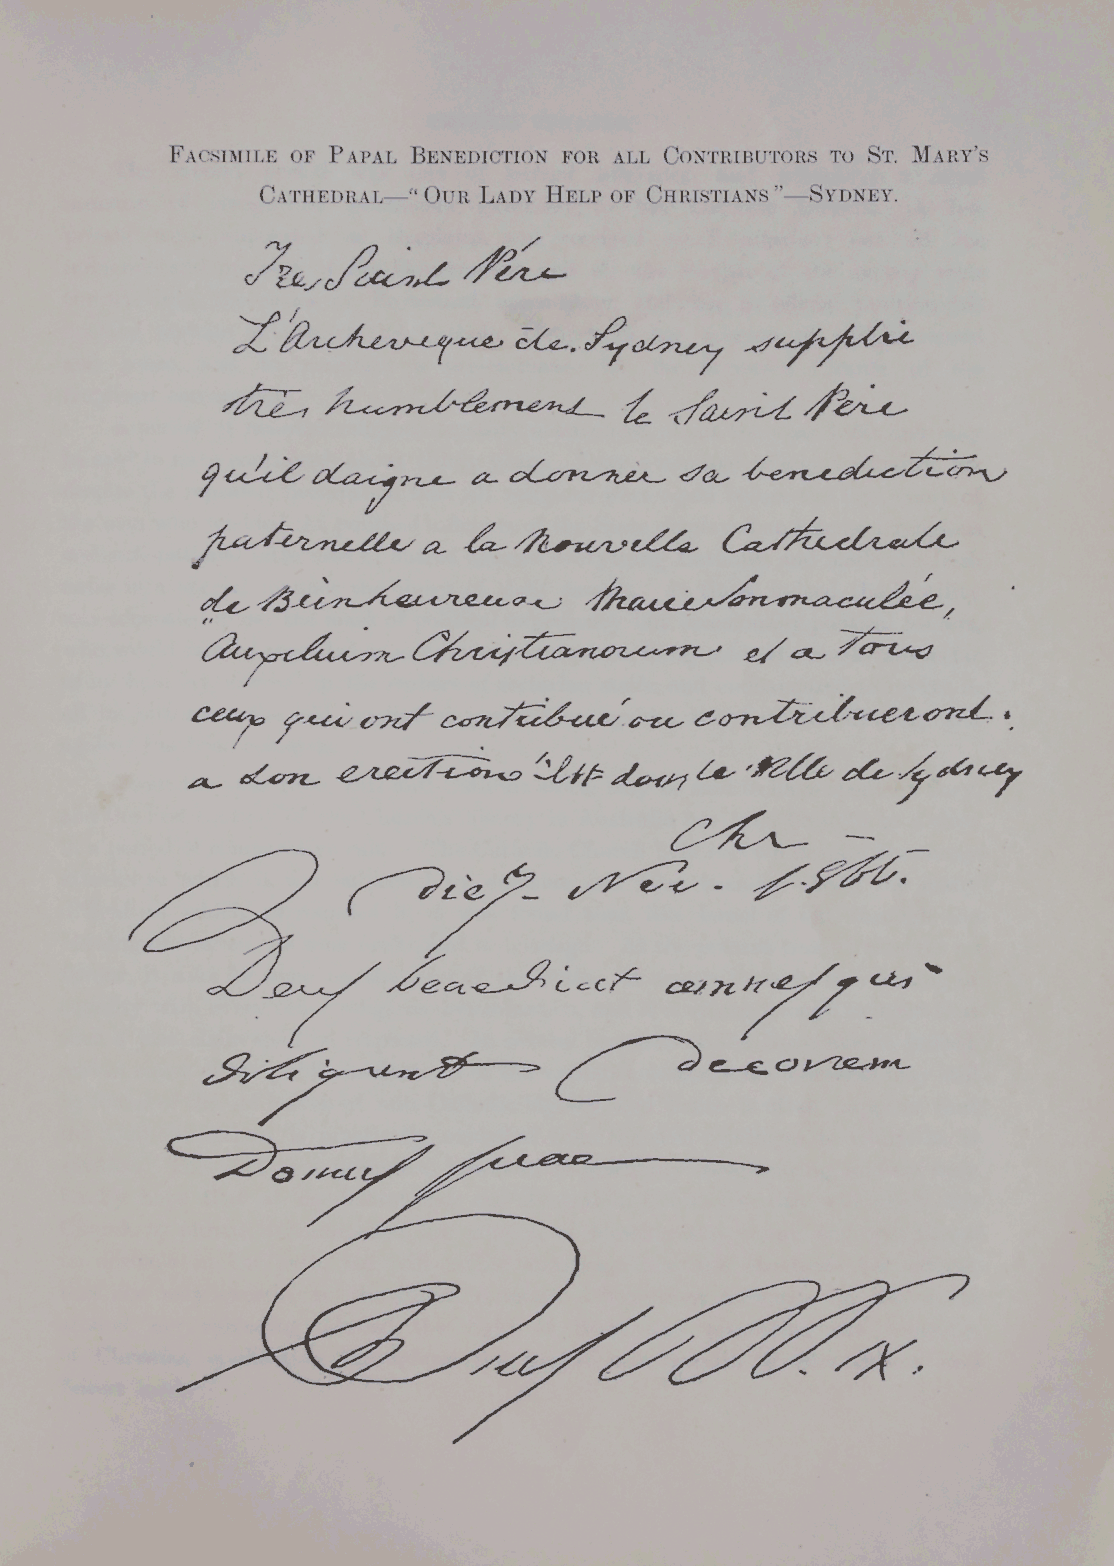 FACSIMILE OF PAPAL BENEDICTION FOR ALL CONTRIBUTORS TO ST. MARY'S
CATHEDRAL—“OUR LADY HELP OF CHRISTIANS”—SYDNEY.
Tres Saint Père
L'Archeveque de Sydney supplie
très humblement le Saint Père
qu'il daigne a donner sa benediction
paternelle a la Nouvelle Cathedrale
de Bienheureuse Marie Immaculée,
"Auxilium Christianorum et a tous
ceux qui ont contribué ou contribueront
a son erection dans la Ville de Sydney
die 7 Nov. 1866.
Deus benedicat omnes qui
diligunt decorem
Domus suae
Pius PP. IX.